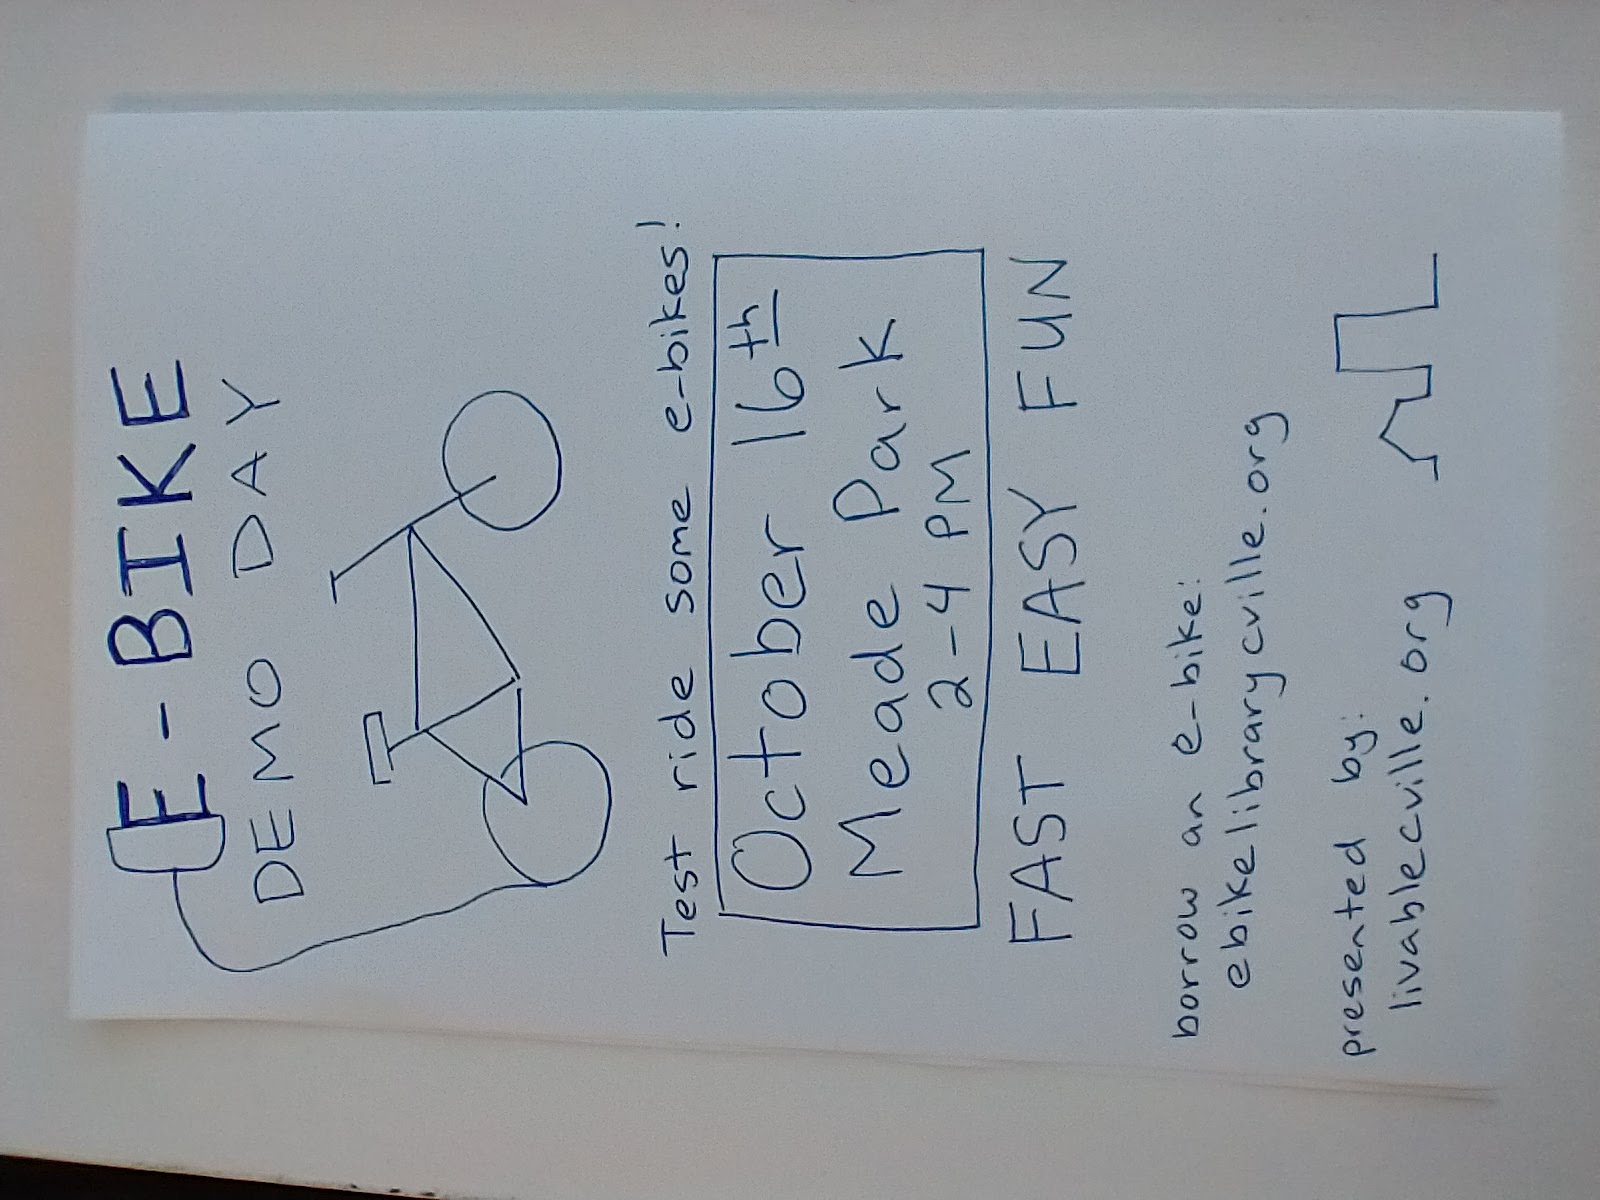 E-BIKE
DEMO DAY
Test ride some e-bikes!
October 16th
Meade Park
2-4 PM
FAST EASY FUN
borrow an e-bike:
ebikelibrarycville.org
presented by:
livablecville.org